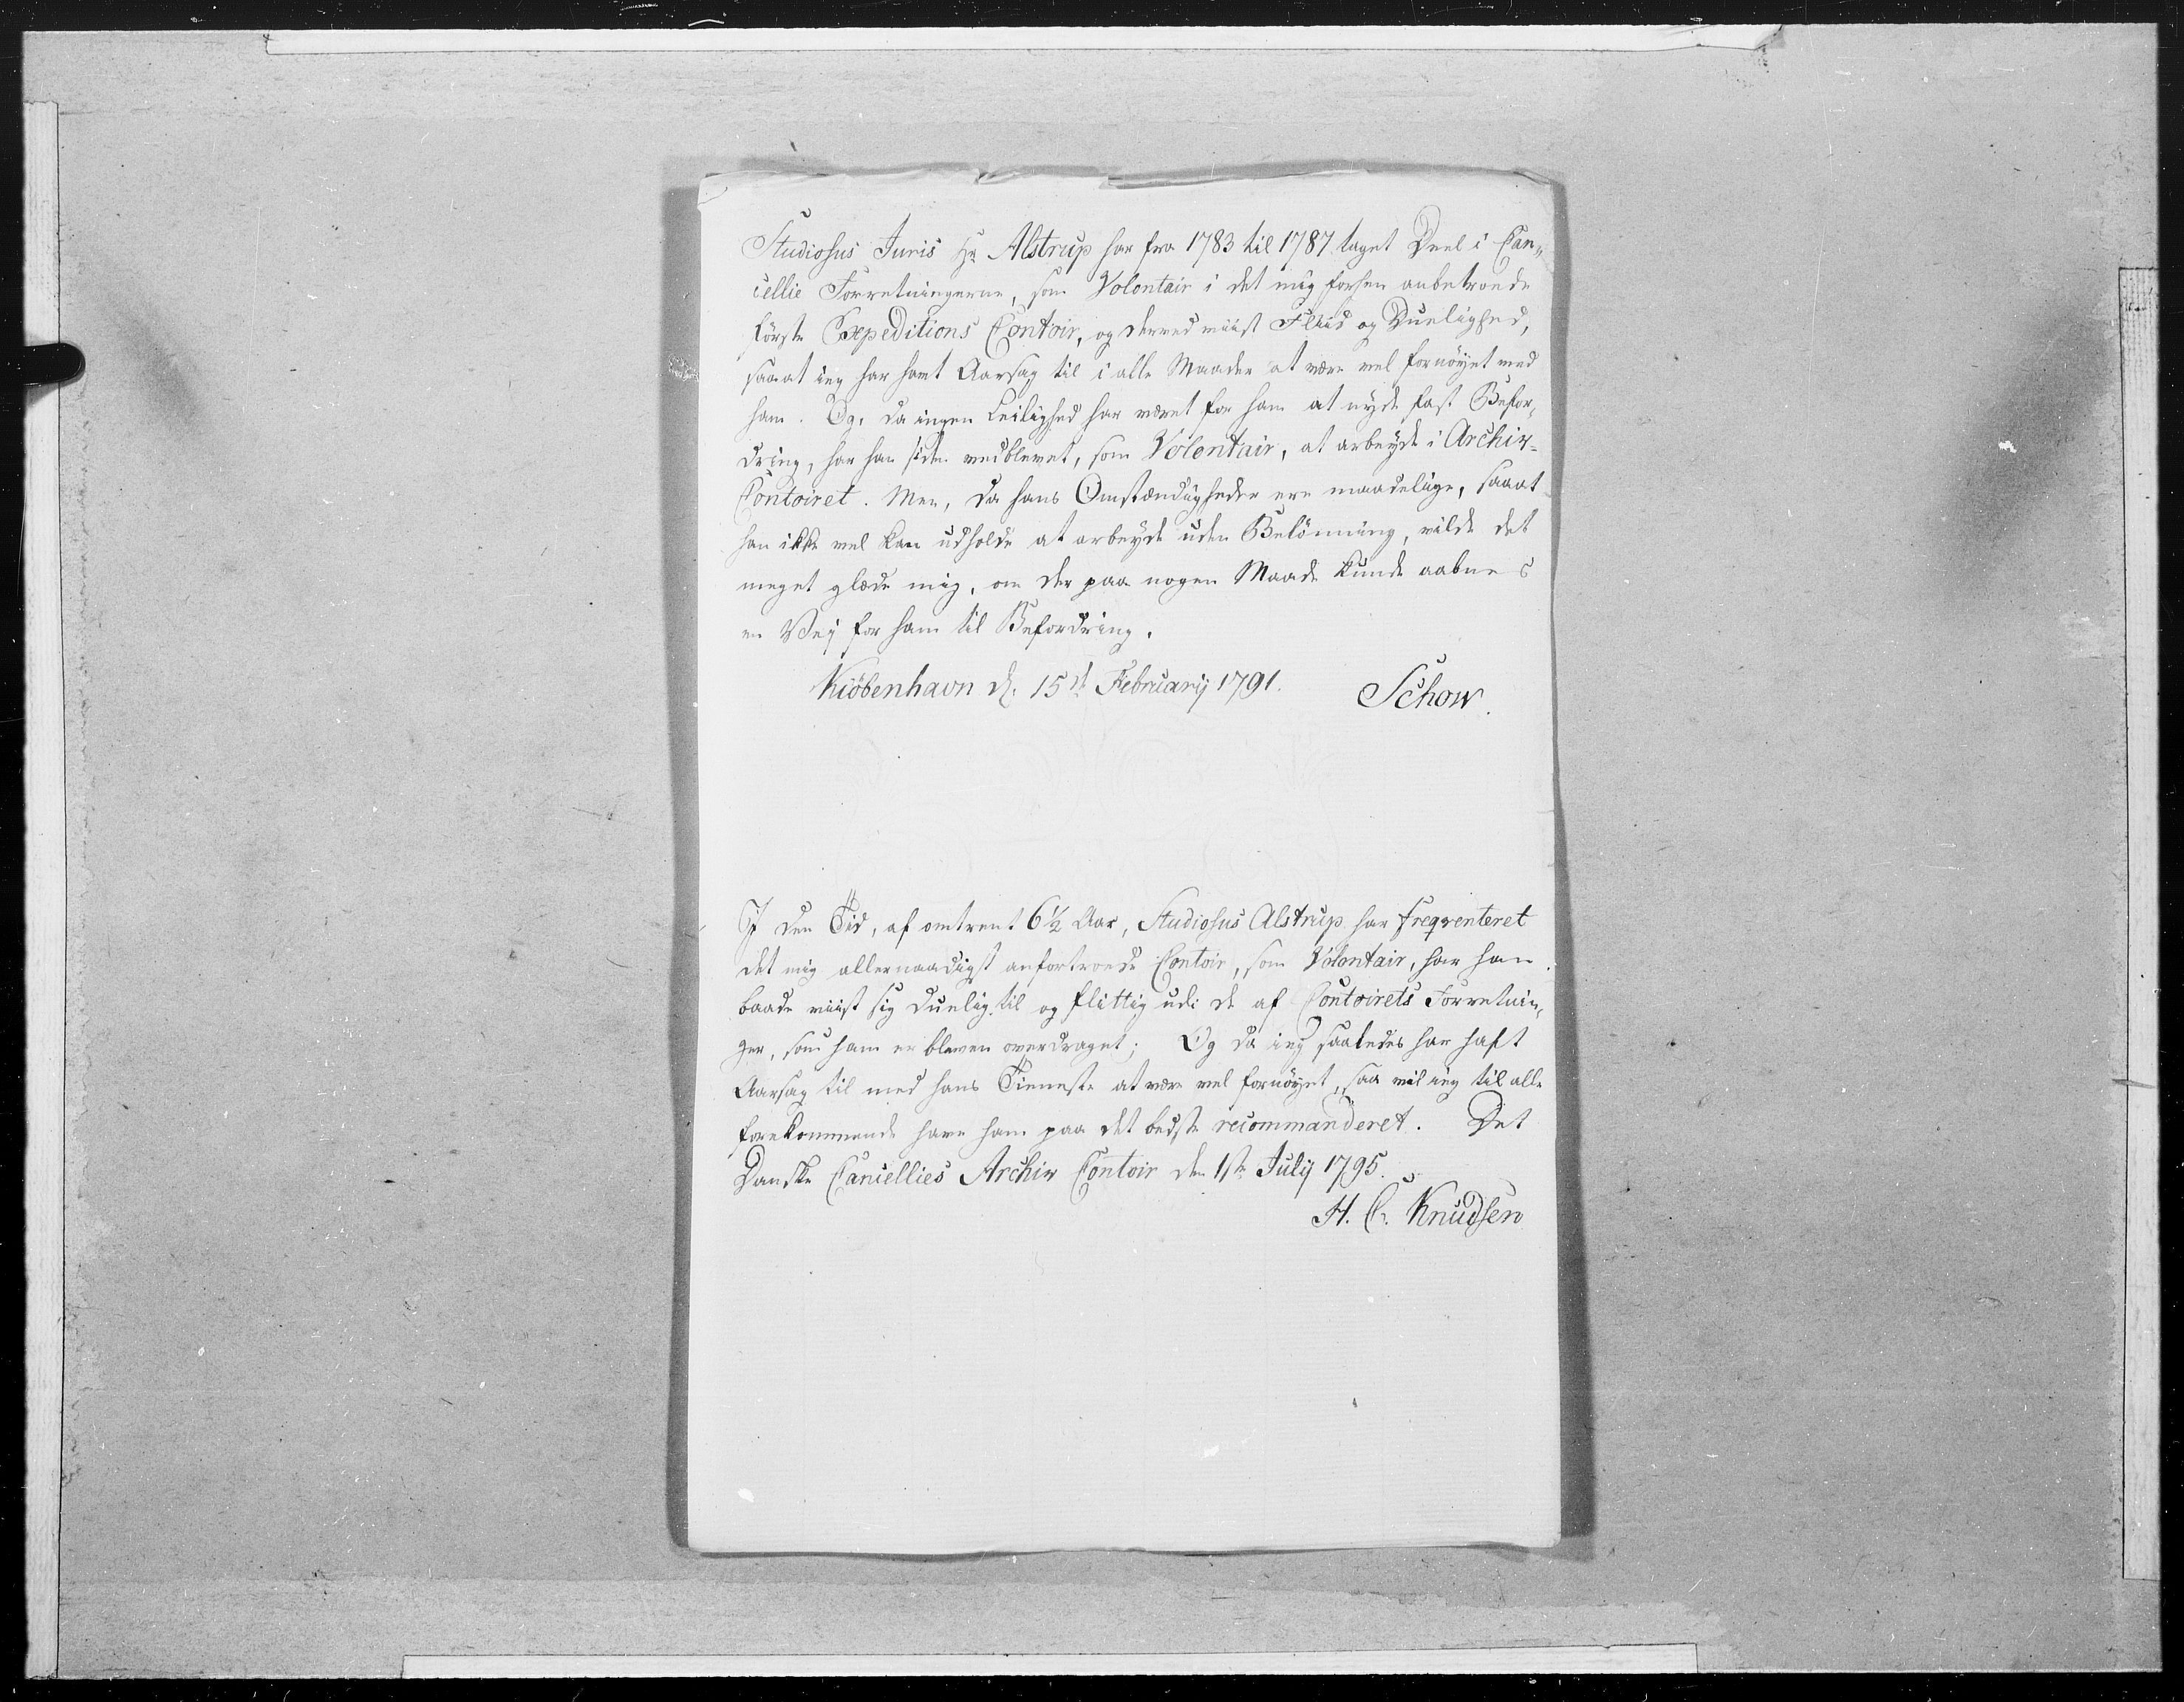 Studiosus Juris Hr Alstrup har fra 1783 til 1787 taget Deel i Can„
cellie Forretningerne, som Volontair i det mig forhen anbetroede
første Expeditions Contoir, og derved viist Fliid og Duelighed,
saaat ieg har havt Aarsag til i alle Maader at være vel fornöyet med
ham. Og, da ingen Leilighed har været for ham at nyde fast Befor„
dring, har han siden vedblevet, som Volentair, at arbeyde i Archiv=
Contoiret. Men, da hans Omstændigheder ere maadelige, saaat
han ikke vel kan udholde at arbeyde uden Belönning, vilde det
meget glæde mig, om der paa nogen Maade kunde aabnes
en Vej for ham til Befordring.
Kiöbenhavn d. 15de February 1791.
Schow.
I den Tid, af omtrent 6½ Aar, Studiosus Alstrup har freqventeret
det mig allernaadigst anfortroede Contoir, som Volontair, har han
baade viist sig duelig til og flittig udi de af Contoirets Forretnin„
ger, som ham er bleven overdraget; Og da ieg saaledes har haft
Aarsag til med hans Tieneste at være vel fornöyet, saa vil ieg til alle
forekommende have ham paa det bedste recommanderet. Det
Danske Cancellies Archiv Contoir den 1ste July 1795.
H. C. Knudsen